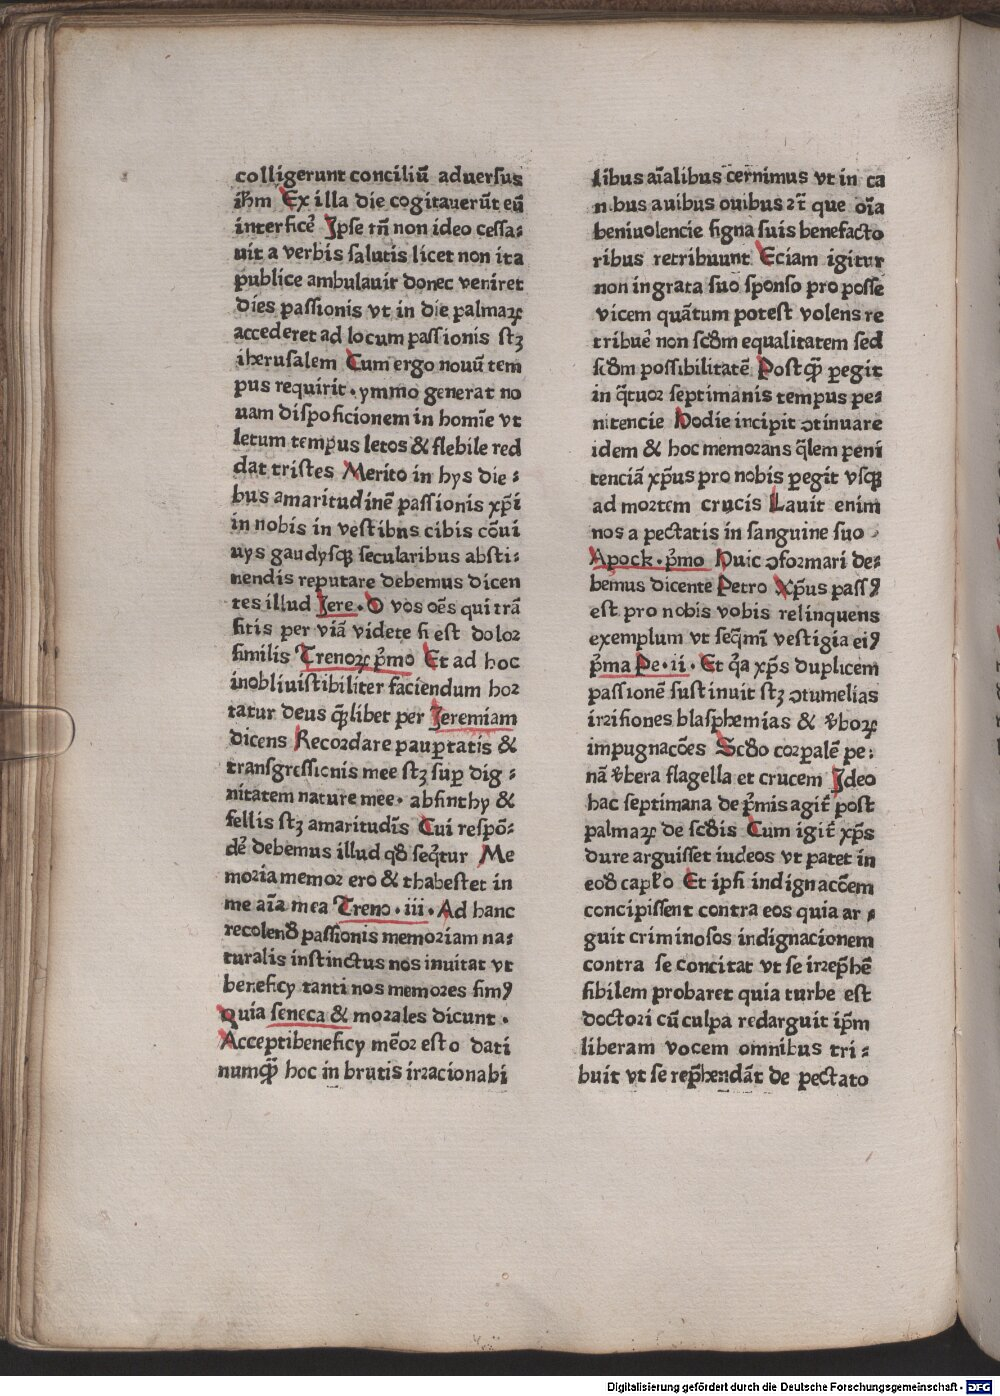 colligerunt conciliū aduersus
ih̄m Ex illa die cogitauerūt eū
interficē Ipse tn̄ non ideo cessa⸗
uit a verbis salutis licet non ita
publice ambulauit donec veniret
dies passionis vt in die palmaꝝ
accederet ad locum passionis stꝫ
iherusalem Cum ergo nouū tem
pus requirit · ymmo generat no
uam disposicionem in homīe vt
letum tempus letos & flebile red
dat tristes Merito in hys die⸗
bus amaritudinē passionis xp̄i
in nobis in vestibns cibis cōui
uys gaudysqꝫ secularibus absti⸗
nendis reputare debemus dicen
tes illud Jere · O vos oēs qui trā
sitis per viā videte si est dolor
similis Trenoꝝ p̄mo Et ad hoc
inobliuistibiliter faciendum hor
tatur deus qꝫlibet per Jeremiam
dicens Recordare pauꝑtatis &
transgressionis mee stꝫ suꝑ dig⸗
nitatem nature mee · absinthy &
fellis stꝫ amaritudīs Cui respō⸗
dē debemus illud qð seq̄tur Me
moria memor ero & thabestet in
me aīa mea Treno · iii · Ad hanc
recolenð passionis memoriam na⸗
turalis instinctus nos inuitat vt
beneficy tanti nos memores simꝰ
Quia seneca & morales dicunt ·
Accepti beneficy mēor esto dati
numqꝫ hoc in brutis irracionabi
libus aīalibus cernimus vt in ca
nibus auibus ouibus ⁊ꝛ̄ que oīa
beniuolencie signa suis benefacto
ribus retribuunt Eciam igitur
non ingrata suo sponso pro posse
vicem quātum potest volens re
tribuē non scðm equalitatem sed
scðm possibilitatē Postqꝫ ꝑegit
in q̄tuor septimanis tempus pe⸗
nitencie Hodie incipit ↄtinuare
idem & hoc memorans q̄lem peni
tenciā xp̄us pro nobis ꝑegit vsqꝫ
ad mortem crucis Lauit enim
nos a pectatis in sanguine suo
Apock · p̄mo Huic ↄformari de⸗
bemus dicente Petro Xp̄us passꝰ
est pro nobis vobis relinquens
exemplum vt seq̄mī vestigia eiꝰ
p̄ma Pe · ii · Et q̄a xp̄s duplicem
passionē sustinuit stꝫ ↄtumelias
irrisiones blasphemias & v̄boꝝ
impugnacōes Scðo corpalē pe⸗
nā v̄bera flagella et crucem Ideo
hac septimana de p̄mis agiť post
palmaꝝ de scðis Cum igiť xp̄s
dure arguisset iudeos vt patet in
eoð capło Et ipsi indignacōem
concipissent contra eos quia ar⸗
guit criminosos indignacionem
contra se concitat vt se irrep̄hē
sibilem probaret quia turbe est
doctori cū culpa redarguit ip̄m
liberam vocem omnibus tri⸗
buit vt se rep̄hendāt de pectato
Digitalisierung gefördert durch die Deutsche Forschungsgemeinschaft - DFG